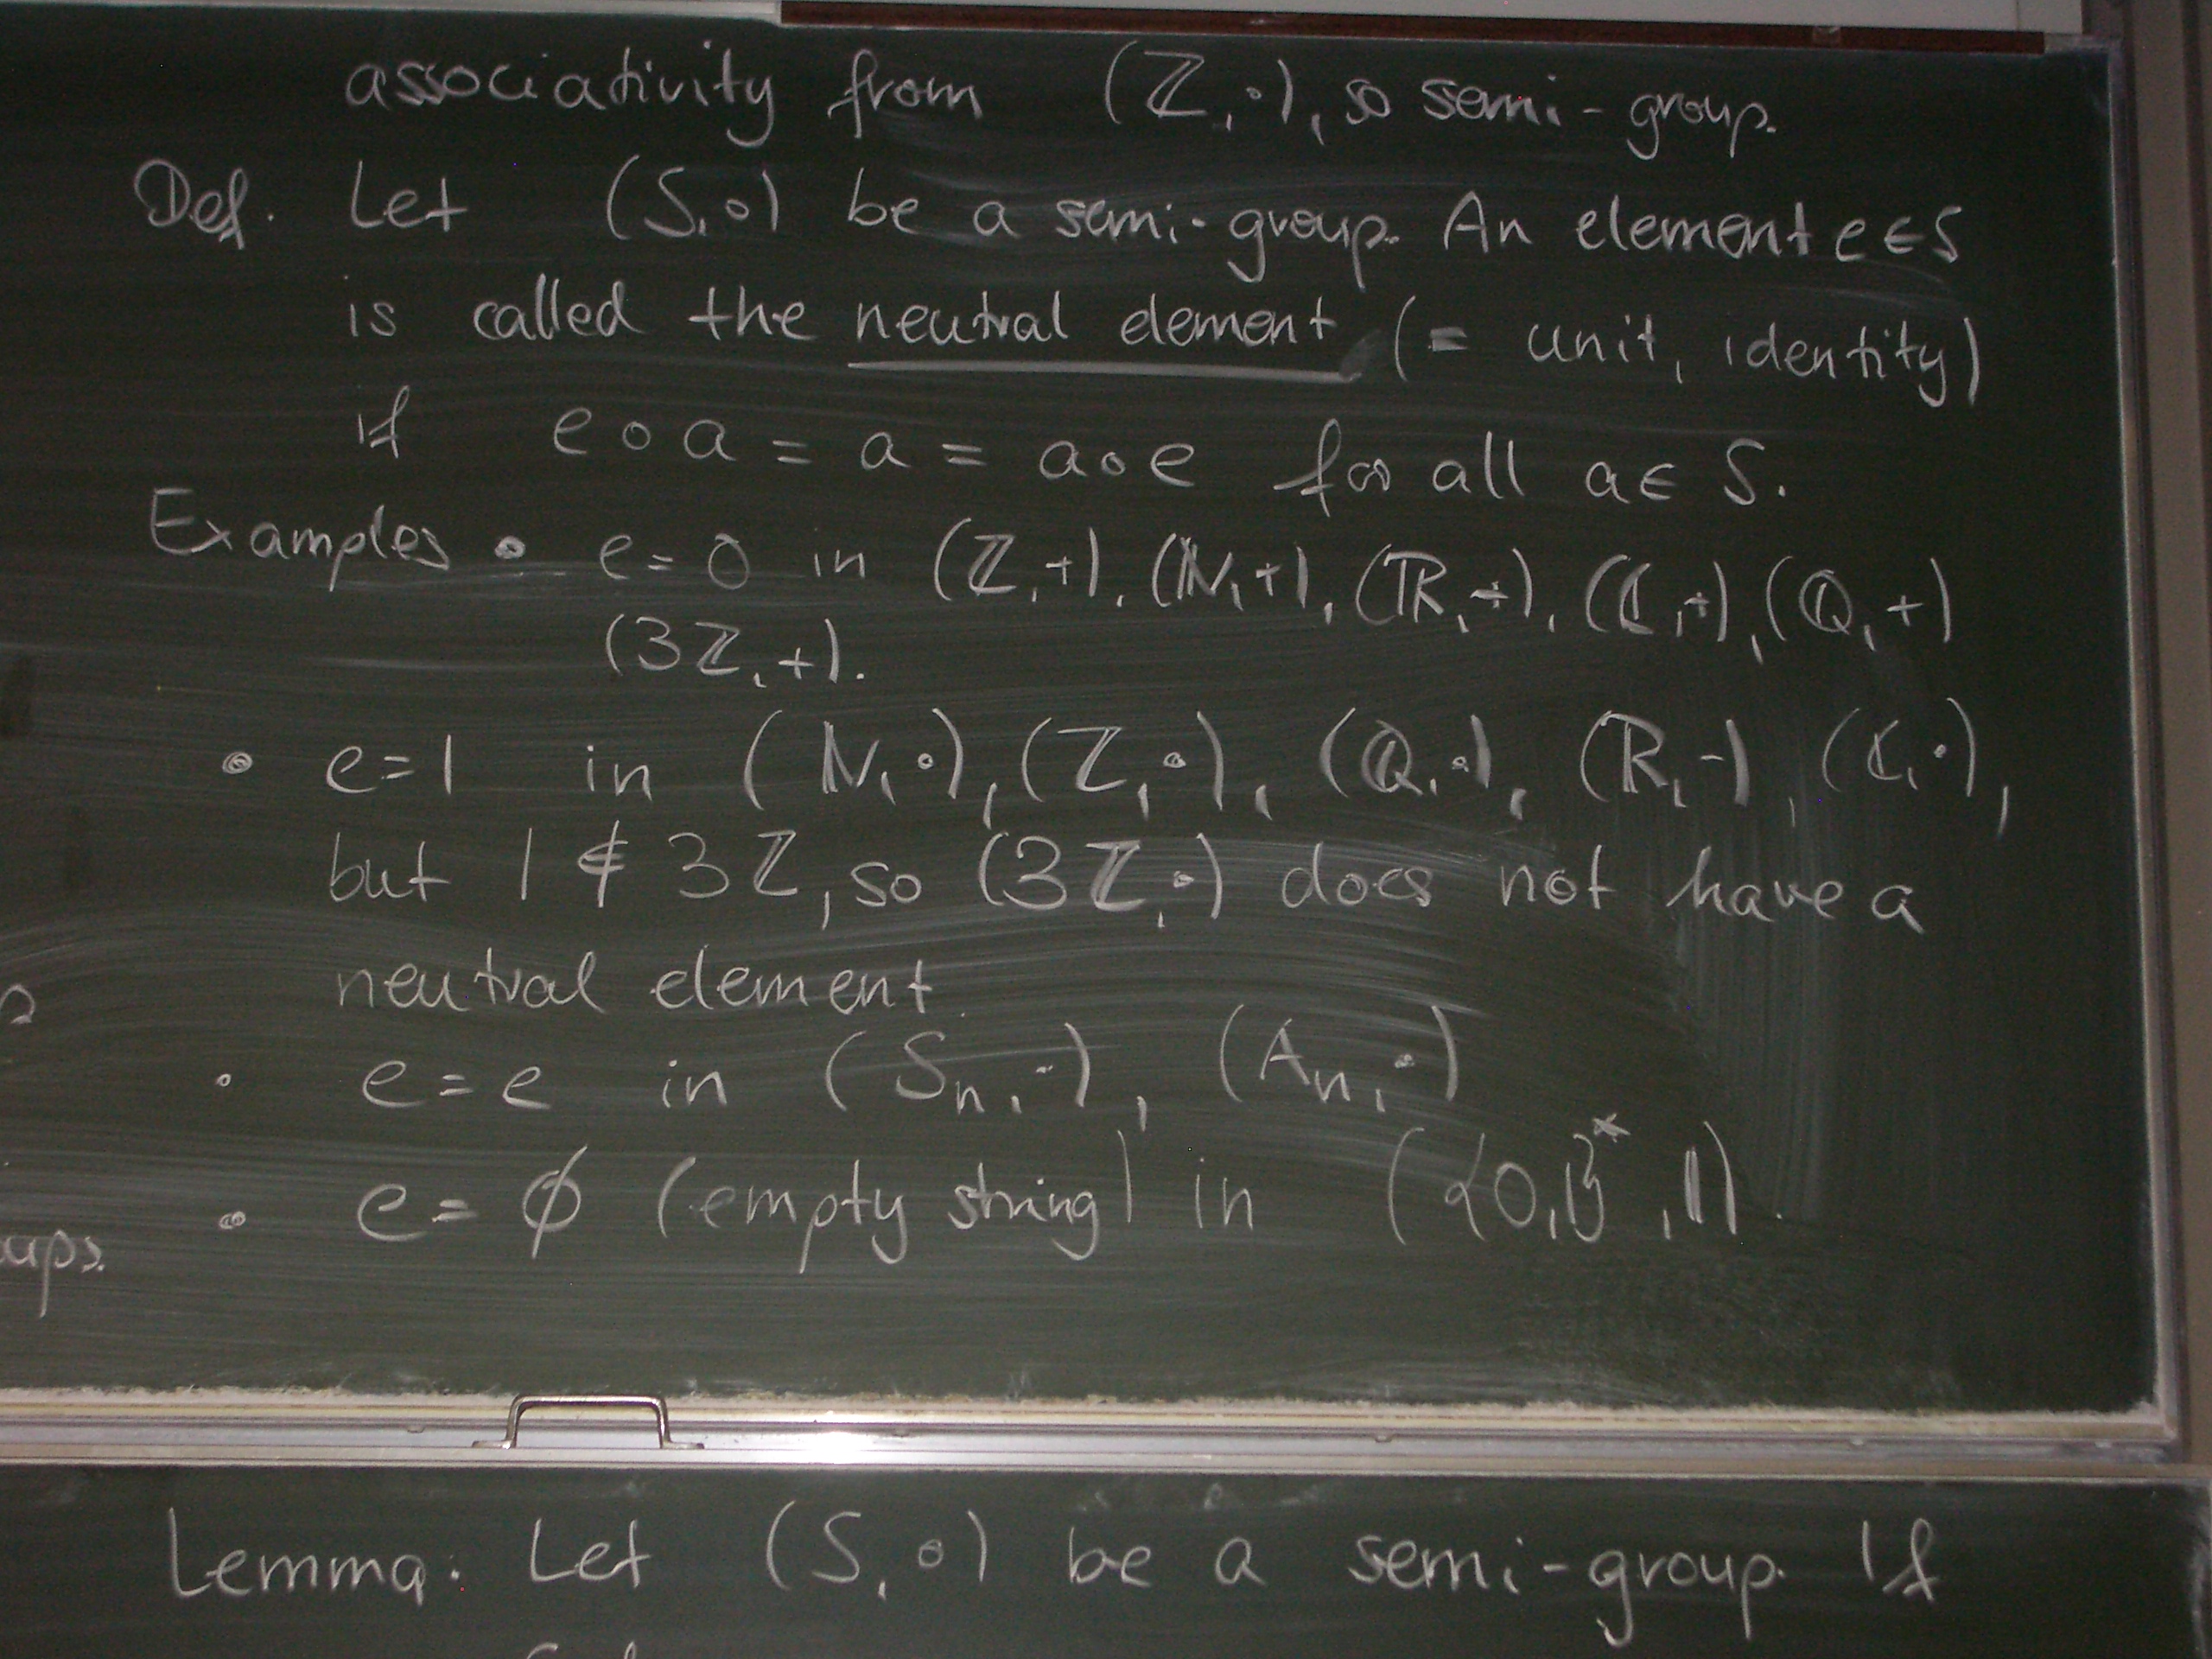 associativity from (ℤ, ·), so semi-group.
Def. Let (S, ∘) be a semi-group. An element e ∈ S
is called the neutral element (= unit, identity)
if e ∘ a = a = a ∘ e for all a ∈ S.
Examples • e = 0 in (ℤ, +), (ℕ, +), (ℝ, +), (ℂ, +), (ℚ, +)
(3ℤ, +).
• e = 1 in (ℕ, ·), (ℤ, ·), (ℚ, ·), (ℝ, ·), (ℂ, ·),
but 1 ∉ 3ℤ, so (3ℤ, ·) does not have a
neutral element.
• e = e in (Sn, ·), (An, ·)
• e = ∅ (empty string) in ({0,1}*, ||).
ups.
Lemma: Let (S, ∘) be a semi-group. If